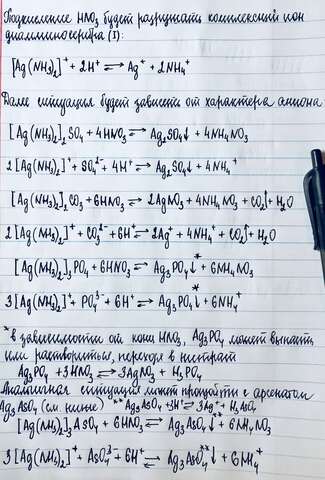 Подкисление HNO₃ будет разрушать комплексный ион
диамминсеребра (I):
[Ag(NH₃)₂]⁺ + 2H⁺ ⇌ Ag⁺ + 2NH₄⁺
Далее ситуация будет зависеть от характера аниона:
[Ag(NH₃)₂]₂SO₄ + 4HNO₃ ⇌ Ag₂SO₄↓ + 4NH₄NO₃
2[Ag(NH₃)₂]⁺ + SO₄²⁻ + 4H⁺ ⇌ Ag₂SO₄↓ + 4NH₄⁺
[Ag(NH₃)₂]₂CO₃ + 6HNO₃ ⇌ 2AgNO₃ + 4NH₄NO₃ + CO₂↑ + H₂O
2[Ag(NH₃)₂]⁺ + CO₃²⁻ + 6H⁺ ⇌ 2Ag⁺ + 4NH₄⁺ + CO₂↑ + H₂O
[Ag(NH₃)₂]₃PO₄ + 6HNO₃ ⇌ Ag₃PO₄↓* + 6NH₄NO₃
3[Ag(NH₃)₂]⁺ + PO₄³⁻ + 6H⁺ ⇌ Ag₃PO₄↓* + 6NH₄⁺
* в зависимости от конц HNO₃, Ag₃PO₄ может выпасть
или раствориться, переходя в нитрат
Ag₃PO₄ + 3HNO₃ ⇌ 3AgNO₃ + H₃PO₄
Аналогичная ситуация может произойти с арсенатом
Ag₃AsO₄ (см. ниже) **Ag₃AsO₄ + 3H⁺ ⇌ 3Ag⁺ + H₃AsO₄
[Ag(NH₃)₂]₃AsO₄ + 6HNO₃ ⇌ Ag₃AsO₄↓** + 6NH₄NO₃
3[Ag(NH₃)₂]⁺ + AsO₄³⁻ + 6H⁺ ⇌ Ag₃AsO₄↓** + 6NH₄⁺